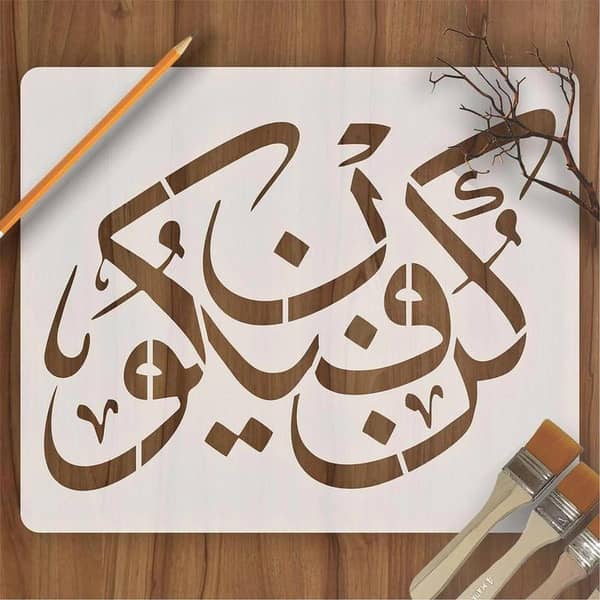 كُنْ فَيَكُونُ